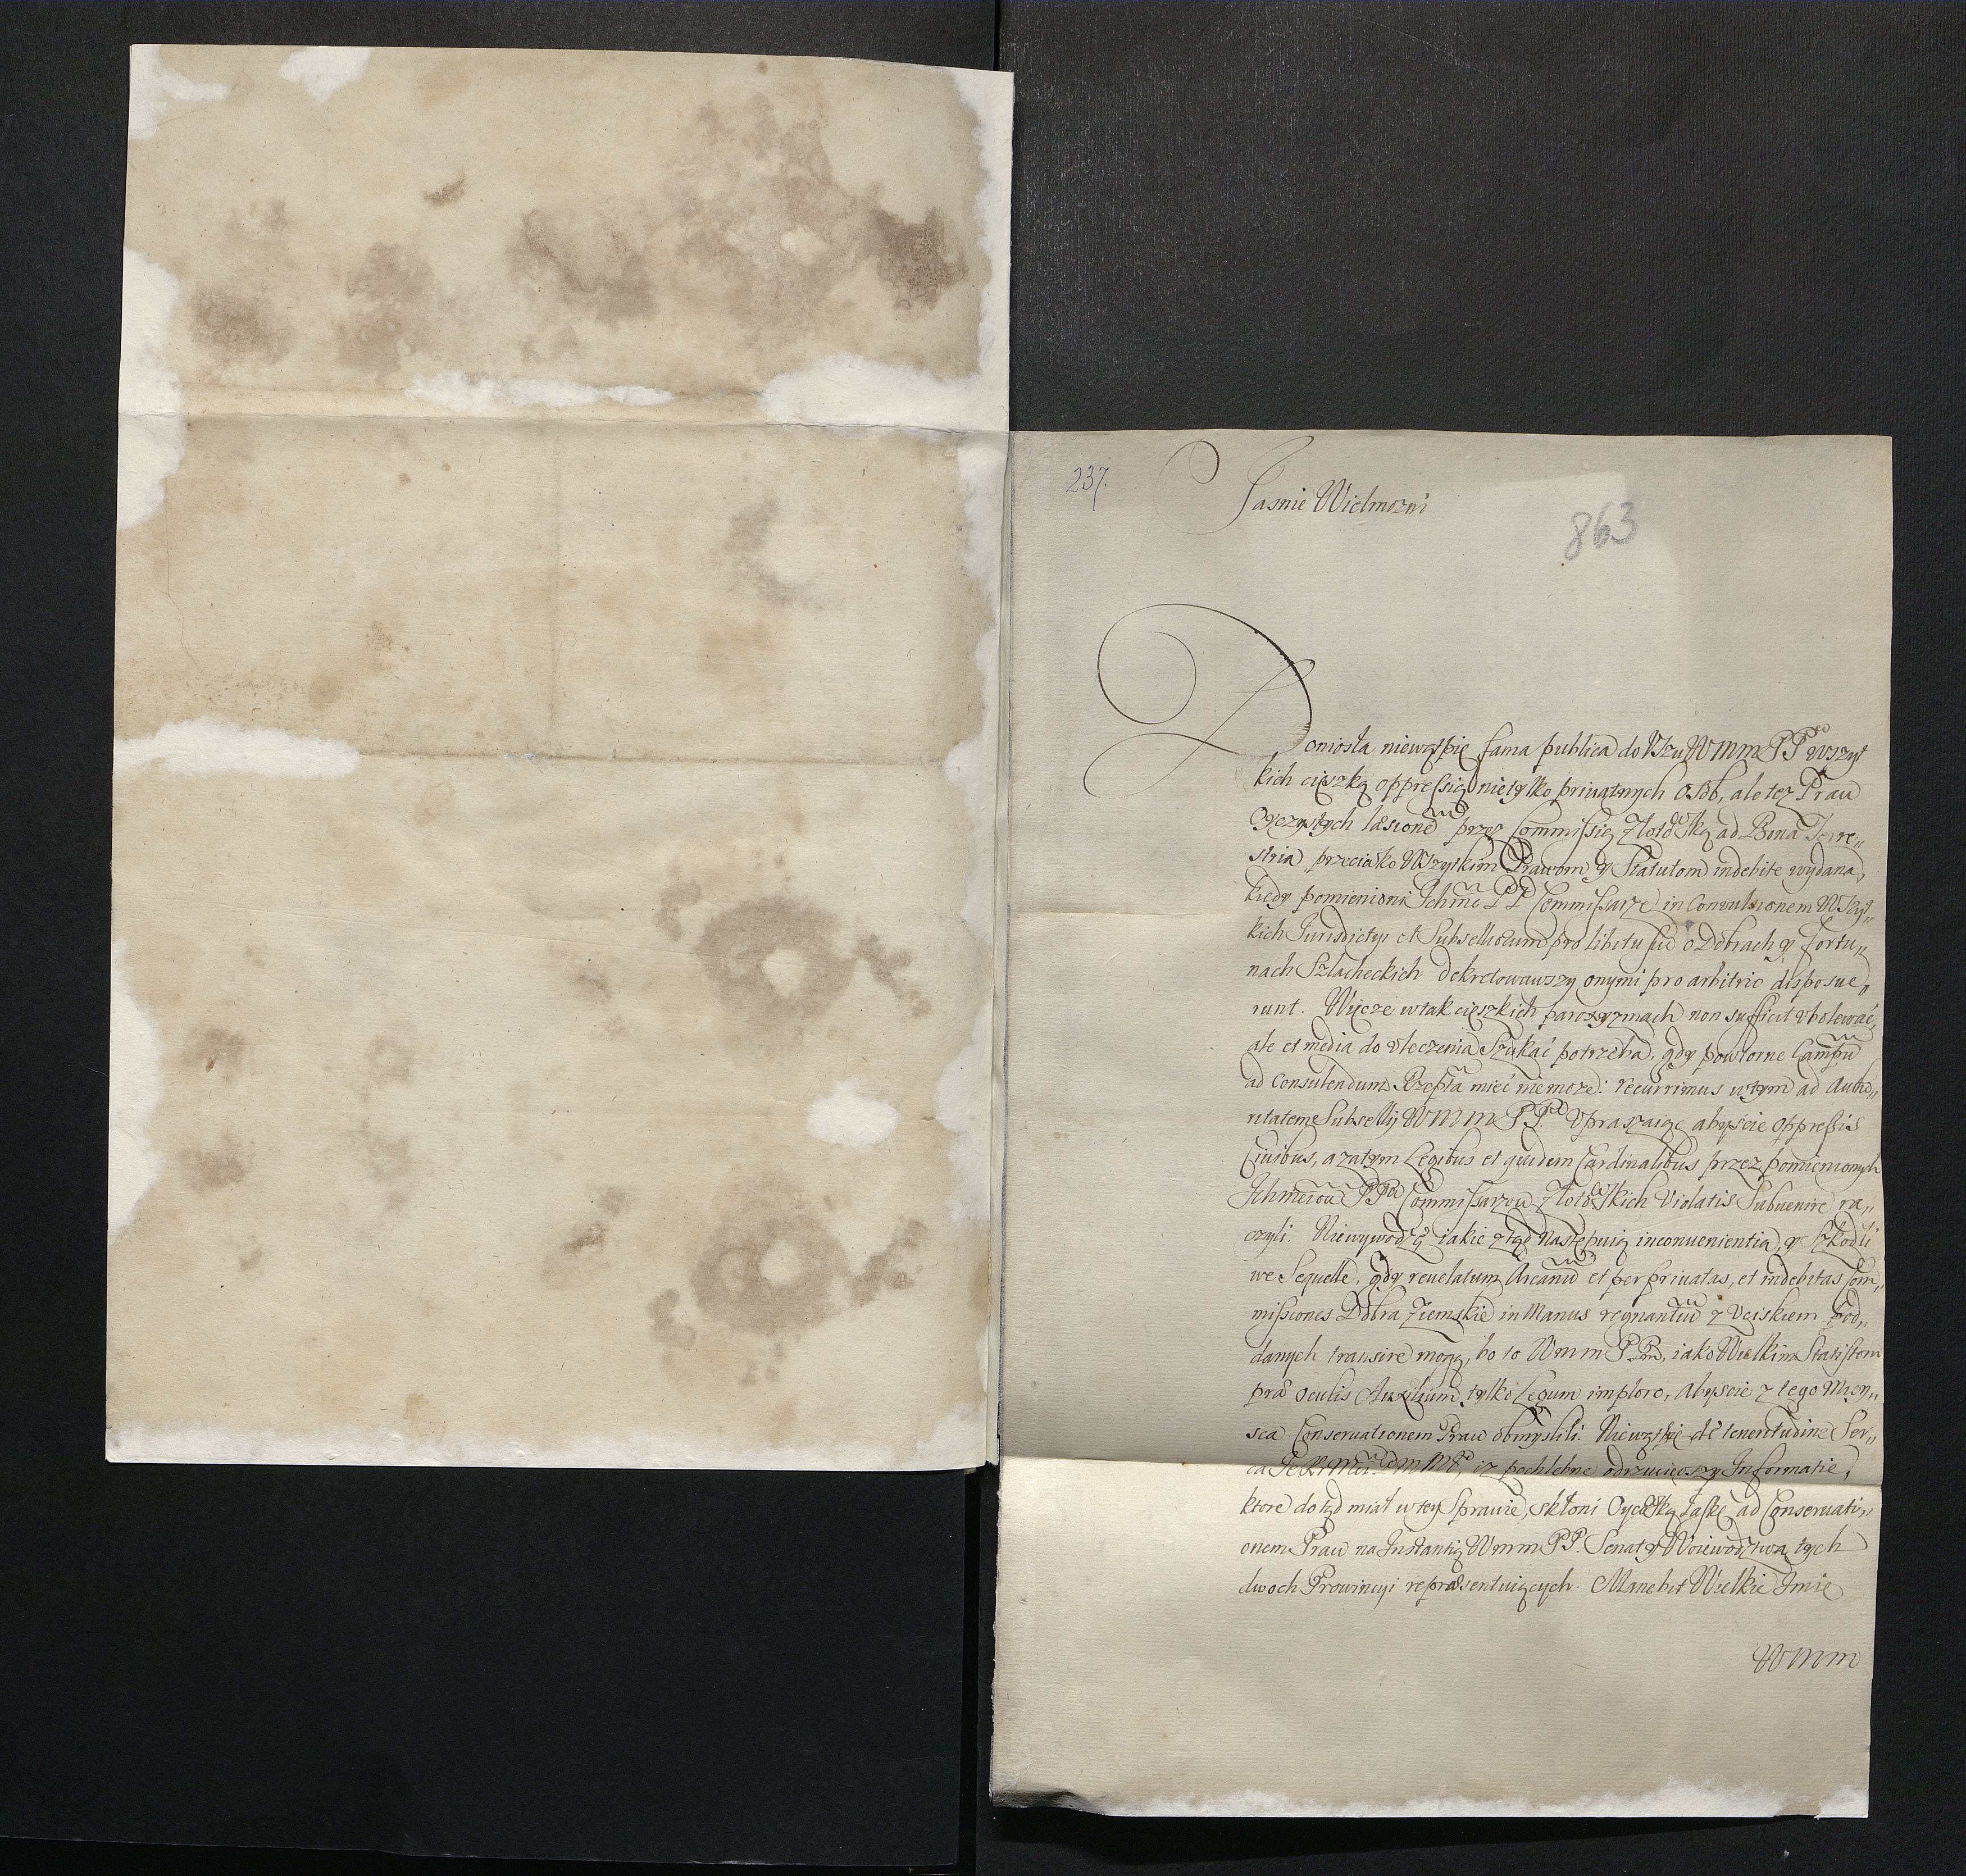 237.
Jasnie Wielmozni
863
Doniosła niewątpię fama publica do Uszu WMM PP wszyt
kich cięszką oppressią nietylko priuatnych Osob, ale też Praw
Oyczystych læsionẽ przez Commissią Złotowską ad Bona Terre„
stria przeciwko Wszytkim Prawom y Statutom indebite wydaną,
kiedy pomienioni Ichmć PP Commissarze in Convulsionem Wszyt„
kich Jurisdictyi et Subselliorum pro libitu suo o Dobrach y fortu„
nach Szlacheckich dekretowawszy onymi pro arbitrio disposue„
runt. Więcże w tak cięszkich paroxyzmach non sufficit vbolewać,
ale et media do vleczenia Szukać potrzeba, gdy powtorne Campũ
ad Consulendum Rzepta mieć niemoże: recurrimus w tym ad Autho„
ritatem Subsellij WMM PP. Vpraszaiąc abyście oppressis
Ciuibus, a zatym Legibus et quidem Cardinalibus przez pomienionych
Ichmciow PPw Commissarzow Złotowskich Violatis Subuenire ra„
czyli. Niewywodzę iakie ztąd następuią inconuenientia, y Szkodli
we Sequelle, gdy reuelatum Arcanũ et per priuatas, et indebitas Com„
missiones Dobra Ziemskie in Manus regnantiũ z Uciskiem Pod„
danych transire mogą, bo to WMM PPm, iako Wielkim Statistom
præ oculis Auxilium tylko Legum imploro, Abyscie z tego Miey„
sca Conseruationem Praw obmyslili. Niewątpię de teneritudine Ser„
ca iż pochlebne odrzuciwszy Informatie,
ktore dotąd miał w tey Sprawie, skłoni Oycowską łaskę ad Conseruati„
onem Praw na Instantią WMM PP. Senat y Woiewodztwa tych
dwoch Prowincyi repræsentuiących. Manebit Wielkie Imię
WMM